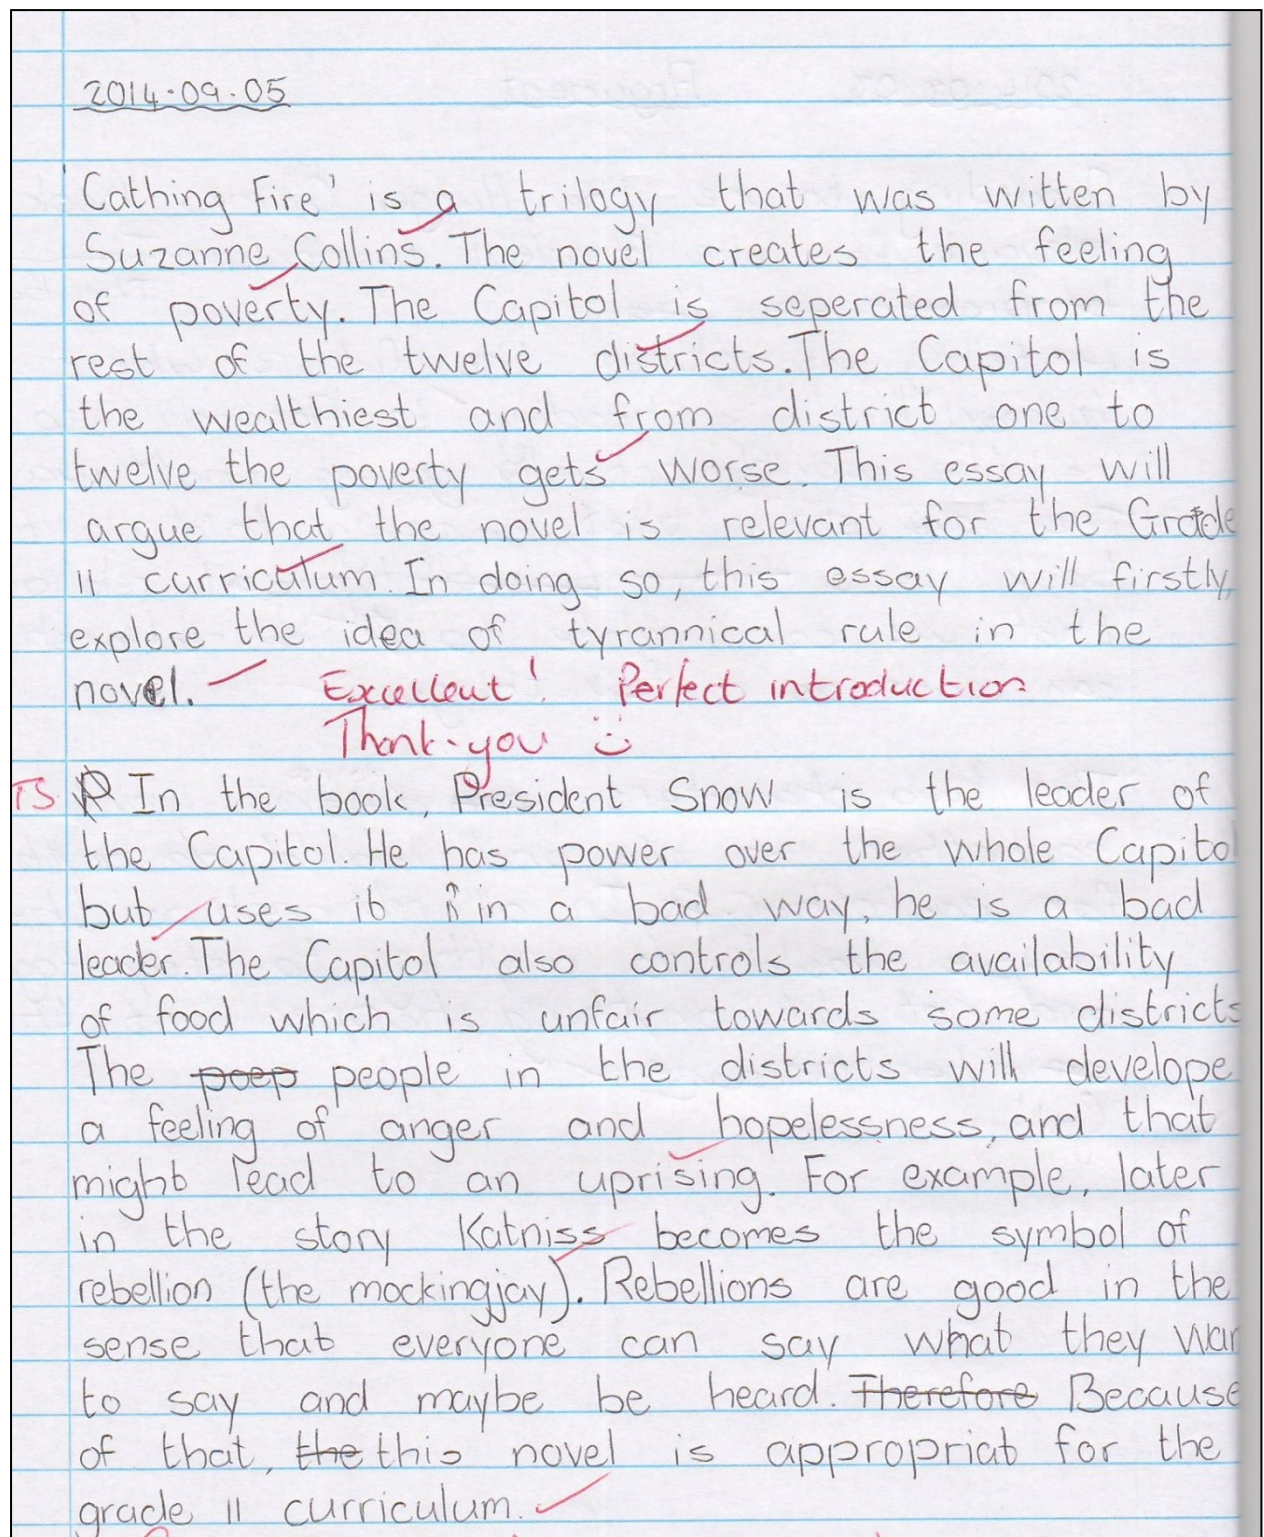 2014.09.05
'Cathing Fire' is a trilogy that was witten by
Suzanne Collins. The novel creates the feeling
of poverty. The Capitol is seperated from the
rest of the twelve districts. The Capitol is
the wealthiest and from district one to
twelve the poverty gets worse. This essay will
argue that the novel is relevant for the Grade
11 curriculum. In doing so, this essay will firstly,
explore the idea of tyrannical rule in the
novel. Excellent! Perfect introduction
Thank-you
TS In the book, President Snow is the leader of
the Capitol. He has power over the whole Capitol
but uses it in a bad way, he is a bad
leader. The Capitol also controls the availability
of food which is unfair towards some districts
The poep people in the districts will develope
a feeling of anger and hopelessness, and that
might lead to an uprising. For example, later
in the story Katniss becomes the symbol of
rebellion (the mockingjay). Rebellions are good in the
sense that everyone can say what they wan
to say and maybe be heard. Therefore Because
of that, the this novel is appropriat for the
grade 11 curriculum.